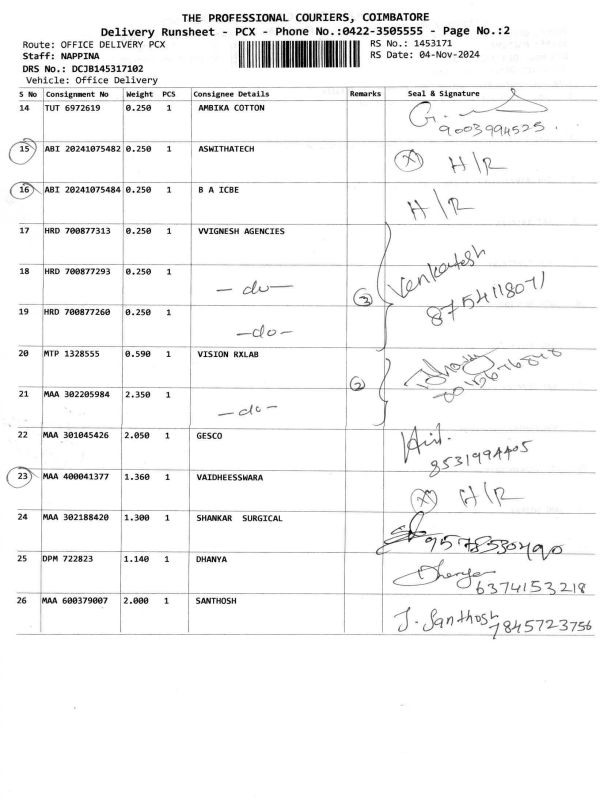 THE PROFESSIONAL COURIERS, COIMBATORE
Delivery Runsheet - PCX - Phone No.:0422-3505555 - Page No.:2
Route: OFFICE DELIVERY PCX RS No.: 1453171
Staff: NAPPINA RS Date: 04-Nov-2024
DRS No.: DCJB145317102
Vehicle: Office Delivery
S No Consignment No Weight PCS Consignee Details Remarks Seal & Signature
14 TUT 6972619 0.250 1 AMBIKA COTTON
9003994525.
15 ABI 20241075482 0.250 1 ASWITHATECH X H/R
16 ABI 20241075484 0.250 1 B A ICBE H/R
17 HRD 700877313 0.250 1 VVIGNESH AGENCIES
Venkatesh
18 HRD 700877293 0.250 1 -do- 3 8754118071
19 HRD 700877260 0.250 1 -do-
20 MTP 1328555 0.590 1 VISION RXLAB
2
21 MAA 302205984 2.350 1 -do-
22 MAA 301045426 2.050 1 GESCO
8531994405
23 MAA 400041377 1.360 1 VAIDHEESSWARA X H/R
24 MAA 302188420 1.300 1 SHANKAR SURGICAL
9578530490
25 DPM 722823 1.140 1 DHANYA Dhanya
6374153218
26 MAA 600379007 2.000 1 SANTHOSH J. Santhosh
7845723756